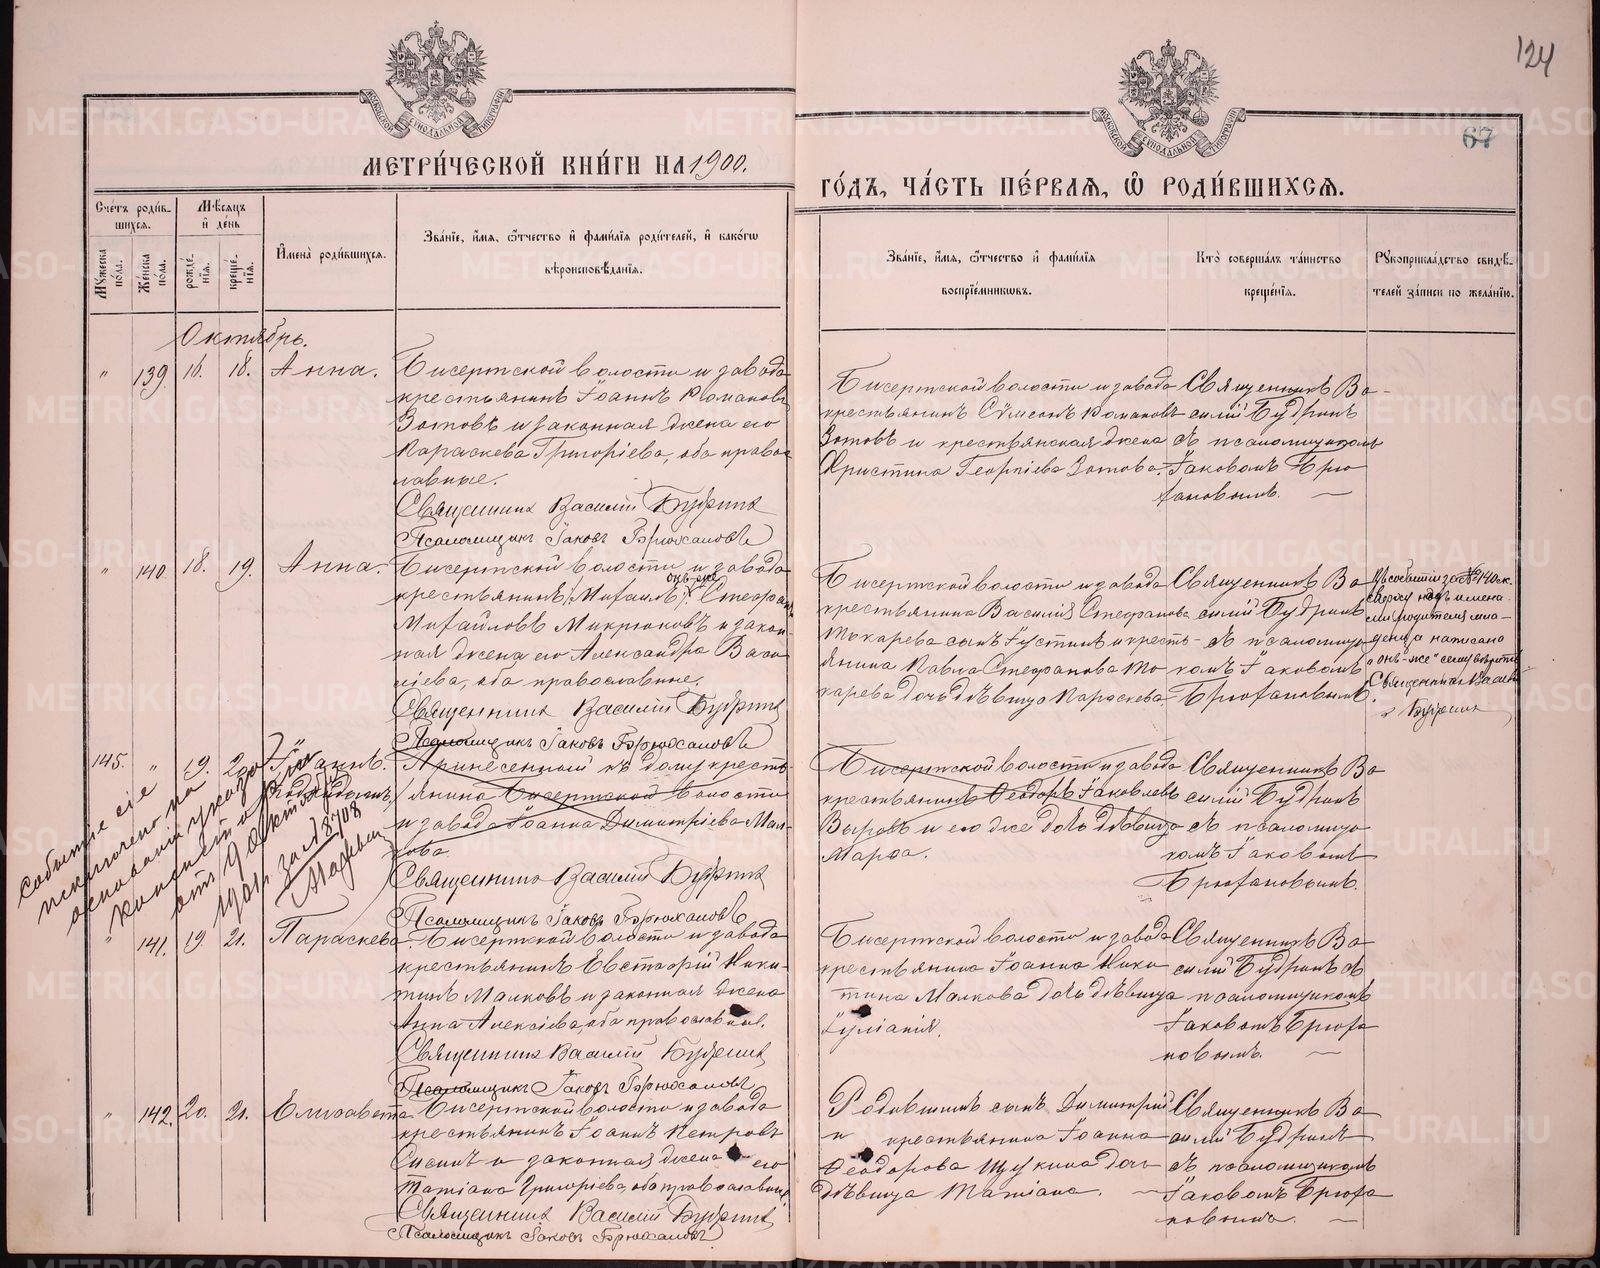 124
67
МЕТРИ́ЧЕСКОЙ КНИ́ГИ НА 1900.
ГО́ДЪ, ЧА́СТЬ ПЕ́РВАЯ, Ѽ РОДИ́ВШИХСЯ.
Сче́тъ роди́в-
шихся.
Мѣ́сяцъ
и҆ де́нь
Му́жеска
по́ла.
Же́нска
по́ла.
рожде́-
нїя.
креще́-
нїя.
И҆мена̀ роди́вшихся.
Зва́нїе, и҆́мя, ѻ҆́тчество и҆ фами́лїя роди́телей, и҆ како́гѡ
вѣроисповѣ́данїя.
Зва́нїе, и҆́мя, ѻ҆́тчество и҆ фами́лїя
воспрїе́мникѡвъ.
Кто̀ соверша́лъ та́инство
креще́нїя.
Рꙋкоприкла́дство свидѣ́-
телей за́писи по жела́нїю.
Октябрь.
" 139. 16. 18. Анна.
Бисертской волости и завода
крестьянинъ Іоаннъ Романовъ
Зотовъ и законная жена его
Параскева Григоріева, оба правос
лавные.
Священникъ Василій Будринъ
Псаломщикъ Іаковъ Брюхановъ
Бисертской волости и завода
крестьянинъ Сѵмеонъ Романовъ
Зотовъ и крестьянская жена
Христина Георгіева Зотова.
Священникъ Ва-
силій Будринъ
съ псаломщикомъ
Іаковомъ Брю
хановымъ.
" 140. 18. 19. Анна.
Бисертской волости и завода
онъ-же
крестьянинъ Михаилъ Стефан
Михайловъ Микрюковъ и закон-
ная жена его Александра Васи
ліева, оба православные.
Священникъ Василій Будринъ
Псаломщикъ Іаковъ Брюхановъ
Бисертской волости и завода
крестьянина Василія Стефанова
Токарева сынъ Іустинъ и кресть-
янина Павла Стефанова То
карева дочь дѣвица Параскева
Священникъ Ва
силій Будринъ
съ псаломщи
комъ Іаковомъ
Брюхановымъ.
Въ событіи за № 140 ск.
сверху надъ имена
ми родителя мла-
денца написано
"онъ-же" сему вѣрить
Священникъ Васил
й Будринъ
145. " 19. 20. Іоаннъ.
Принесенный къ дому кресть-
янина Бисертской волости
и завода Іоанна Димитріева Мал-
кова.
Священникъ Василій Будринъ
Псаломщикъ Іаковъ Брюхановъ
Бисертской волости и завода
крестьянинъ Ѳеодоръ Іаковлевъ
Выровъ и его же дочь дѣвица
Марѳа.
Священникъ Ва
силій Будринъ
съ псаломщи
комъ Іаковомъ
Брюхановымъ.
Событіе сіе
исключено на
основаніи указа
от 19 октября
1901 г. за № 18708
" 141. 19 21. Параскева
Бисертской волости и завода
крестьянинъ Евстафій Ники-
тинъ Малковъ и законная жена
Анна Алексіева, оба православные.
Священникъ Василій Будринъ
Псаломщикъ Іаковъ Брюхановъ
Бисертской волости и завода
крестьянина Іоанна Ники
тина Малкова дочь дѣвица
Іуліанія.
Священникъ Ва
силій Будринъ съ
псаломщикомъ
Іаковомъ Брюха
новымъ.
" 142. 20. 21. Елисавета
Бисертской волости и завода
крестьянинъ Іоаннъ Петровъ
Сисинъ и законная жена его
Татіана Григоріева, оба православные
Священникъ Василій Будринъ
Псаломщикъ Іаковъ Брюхановъ
Родившимъ сынъ Димитрій
и крестьянина Іоанна
Ѳеодорова Щукина дочь
дѣвица Татіана.
Священникъ Ва
силій Будринъ
съ псаломщикомъ
Іаковомъ Брюха
новымъ.
METRIKI.GASO-URAL.RU